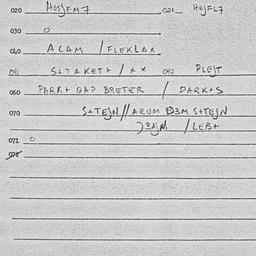 020 HOJEM7 021 HEJFL7
030 0
040 ACAM / FLEKLAX
041 S+TAKET+ / xx 042 PLEJT
060 PARK+ OAP BRETER / PARK+S
070 S+TEJN // ARUM B3M S+TEJN
)BAJM / LEB+
071 0
072